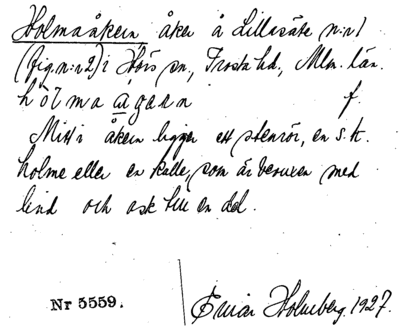 Holmaåkern åker å Lillasäte n:r 1
(fig. n:r 2) i Hörs sn, Frosta hd, Mlm. län.
hólma ågärn f.
Mitt i åkern ligger ett stenrör, en s. k.
holme eller en kalle, som är bevuxen med
lind och ask till en del.
Nr 5559. Einar Holmberg. 1927.